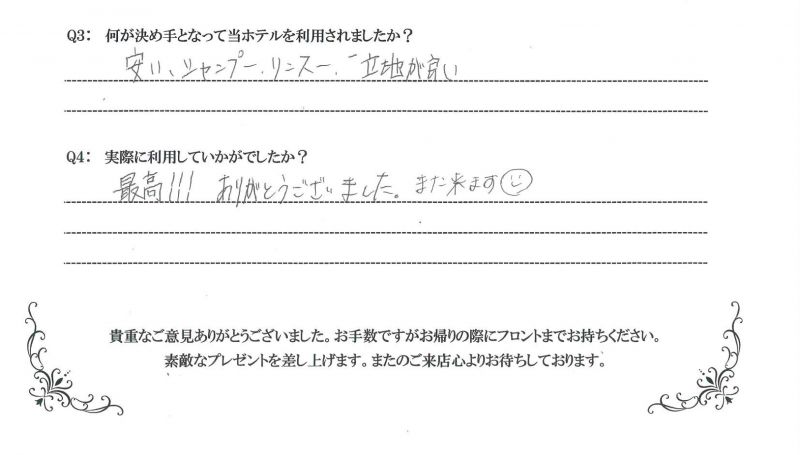 Q3: 何が決め手となって当ホテルを利用されましたか？
安い、シャンプー、リンスー、立地が良い
Q4: 実際に利用していかがでしたか？
最高!!! ありがとうございました。また来ます
貴重なご意見ありがとうございました。お手数ですがお帰りの際にフロントまでお持ちください。
素敵なプレゼントを差し上げます。またのご来店心よりお待ちしております。